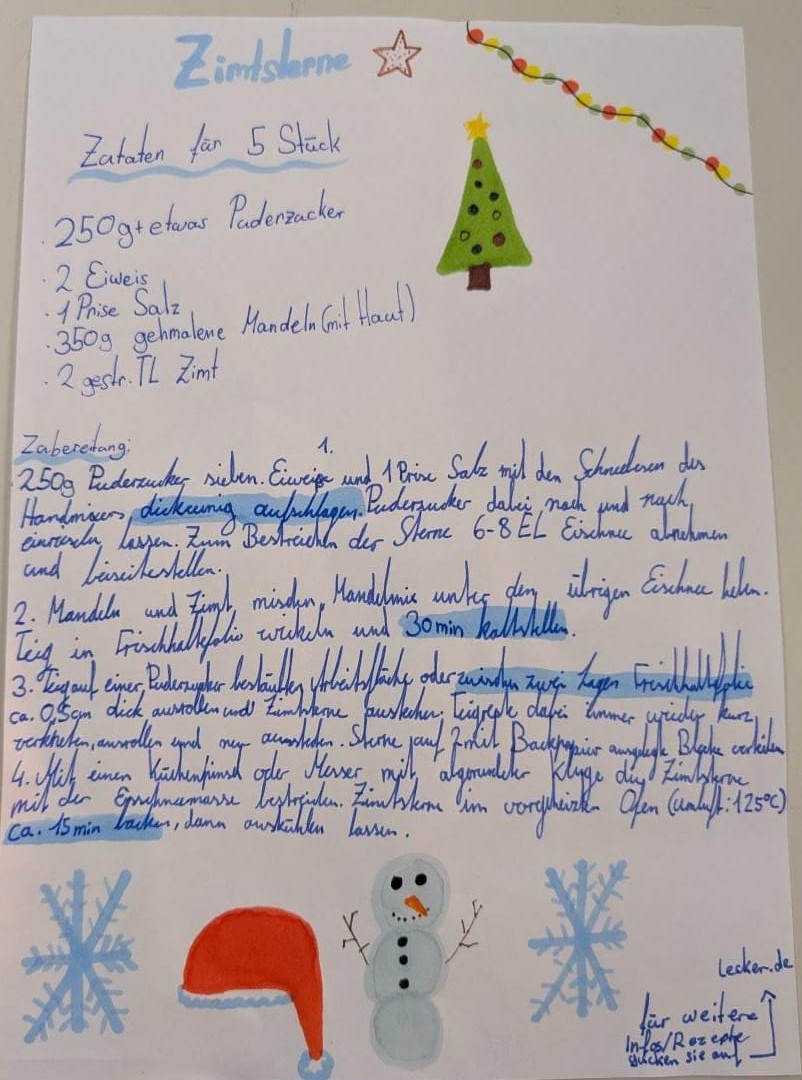 Zimtsterne
Zutaten für 5 Stück
· 250g+etwas Puderzucker
· 2 Eiweis
· 1 Prise Salz
· 350g gehmalene Mandeln (mit Haut)
· 2 gestr. TL Zimt
Zubereitung:
1.
250g Puderzucker sieben. Eiweiße und 1 Prise Salz mit den Schneebesen des
Handmixers dickcremig aufschlagen. Puderzucker dabei nach und nach
einrieseln lassen. Zum Bestreichen der Sterne 6-8 EL Eischnee abnehmen
und beiseitestellen.
2. Mandeln und Zimt mischen, Mandelmix unter den übrigen Eischnee heben.
Teig in Frischhaltefolie wickeln und 30min kaltstellen.
3. Teig auf einer Puderzucker bestäubten Arbeitsfläche oder zwischen zwei Lagen Frischhaltefolie
ca. 0,5cm dick ausrollen und Zimtsterne ausstechen. Teigreste dabei immer wieder kurz
verkneten, ausrollen und neu ausstechen. Sterne auf 2 mit Backpapier ausgelegte Bleche verteilen
4. Mit einen Küchenpinsel oder Messer mit abgerundeter Klinge die Zimtsterne
mit der bestreichen. Zimtsterne im vorgeheizten Ofen (Umluft: 125°C)
ca. 15min backen, dann auskühlen lassen.
Lecker.de
für weitere
Infos/Rezepte
gucken sie auf